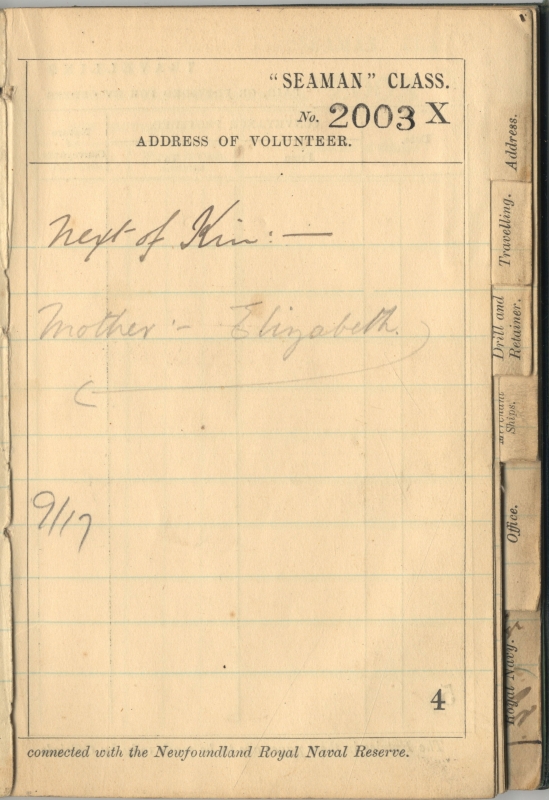 "SEAMAN" CLASS.
No. 2003 X
ADDRESS OF VOLUNTEER.
Next of Kin: —
Mother :- Elizabeth.
9/17
4
connected with the Newfoundland Royal Naval Reserve.
Address.
Travelling.
Drill and
Retainer.
Merchant
Ships.
Office.
Royal Navy.